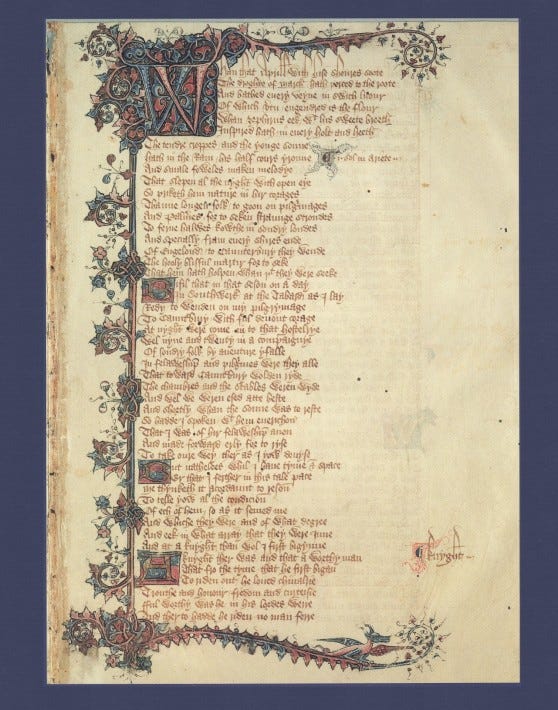 Whan that Aprill with his shoures soote
The droghte of March hath perced to the roote
And bathed every veyne in swich licour
Of which vertu engendred is the flour
Whan Zephirus eek wt his sweete breeth
Inspired hath in every holt and heeth
The tendre croppes and the yonge sonne
hath in the Ram his half cours yronne
.i. sol in ariete
And smale foweles maken melodye
That slepen al the nyght with open eye
So priketh hem nature in hir corages
Thanne longen folk to goon on pilgrimages
And Palmeres for to seken straunge strondes
To ferne halwes kowthe in sondry londes
And specially from every shires ende
Of Engelond to Caunterbury they wende
The hooly blisful martir for to seke
That hem hath holpen whan þt they were seeke
Bifil that in that seson on a day
In Southwerk at the Tabard as I lay
Redy to wenden on my pilgrymage
To Caunterbury with ful devout corage
At nyght were come in to that hostelrye
Wel nyne and twenty in a compaignye
Of sondry folk by aventure yfalle
In felaweshipe and pilgrimes were they alle
That toward Caunterbury wolden ryde
The chambres and the stables weren wyde
And wel we weren esed atte beste
And shortly whan the sonne was to reste
So hadde I spoken wt hem everichon
That I was of hir felaweshipe anon
And made forward erly for to ryse
To take oure wey ther as I yow devyse
But nathelees whil I have tyme & space
Er that I ferther in this tale pace
Me thynketh it acordaunt to reson
To telle yow al the condicion
Of ech of hem so as it semed me
And whiche they were and of what degree
And eek in what array that they were inne
And at a knyght than wol I first bigynne
A knyght ther was and that a worthy man
That fro the tyme that he first bigan
To riden out he loved chivalrie
Trouthe and honour fredom and curteisie
fful worthy was he in his lordes werre
And therto hadde he riden no man ferre
Knyght